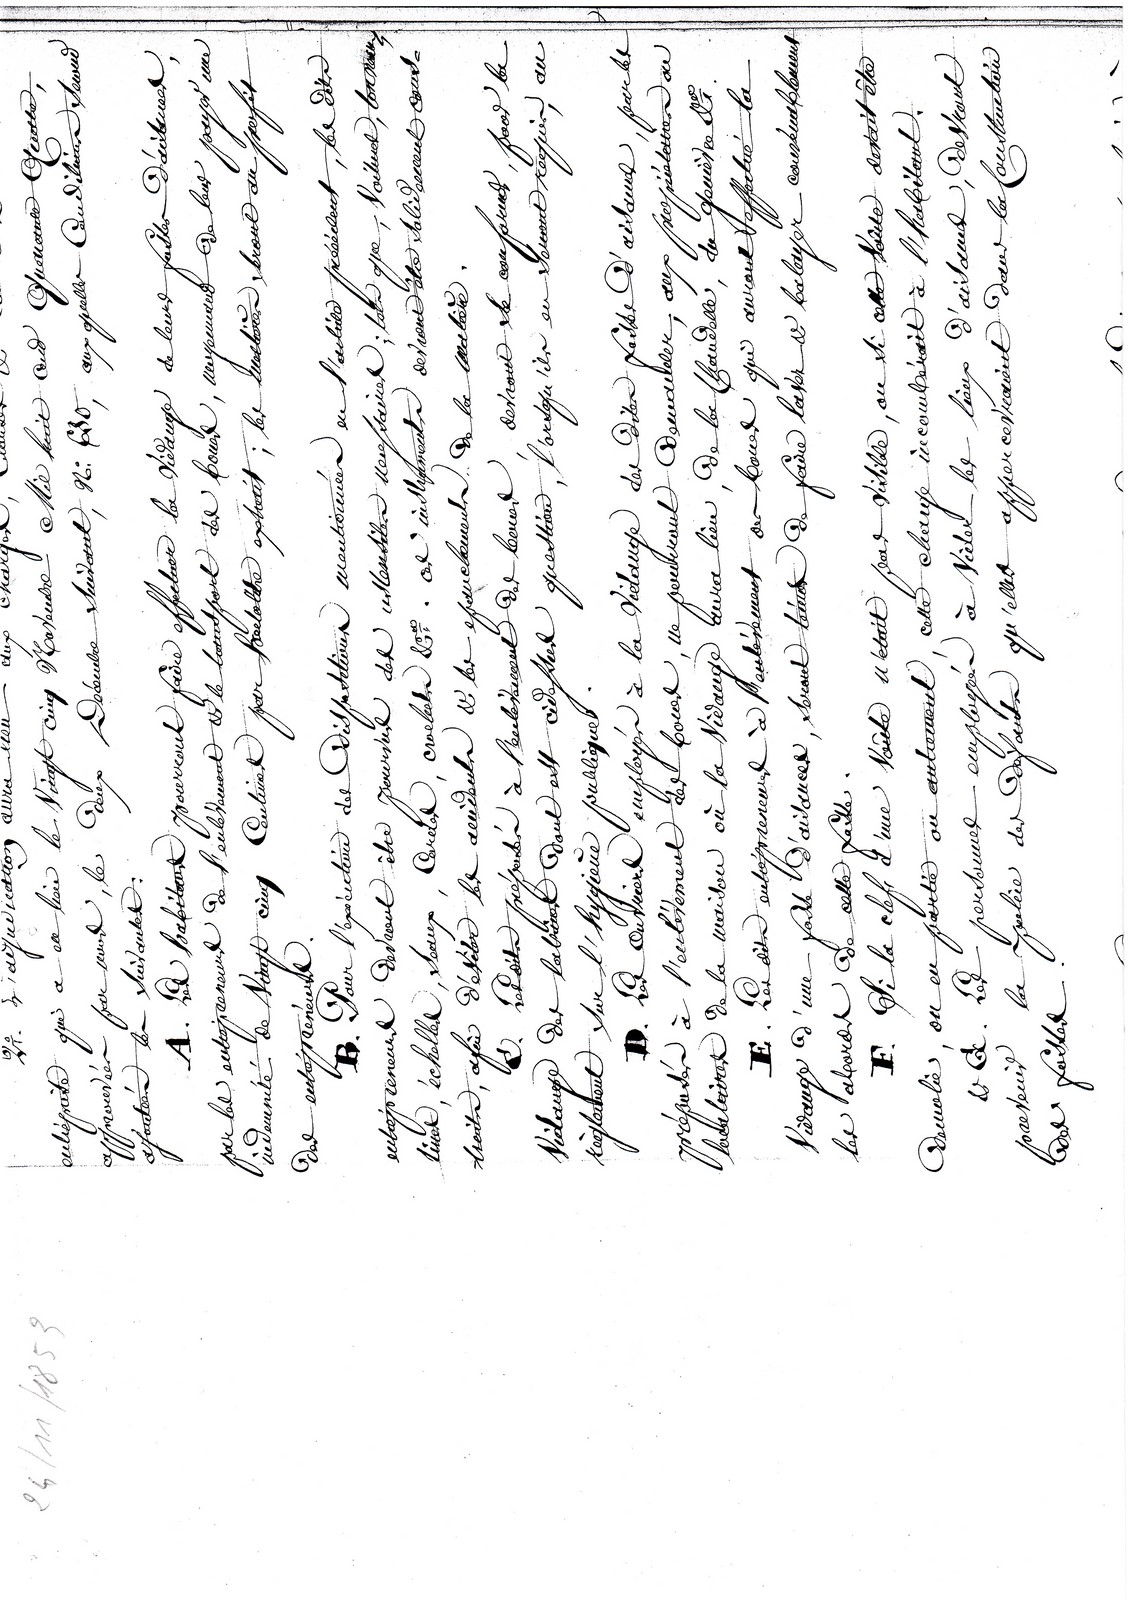 2.° L'adjudication annuelle aux charges, clauses et
entreprise qui a eu lieu le Vingt cinq Novembre Mil huit cent Quarante Quatre,
approuvée par nous, le Deux Décembre suivant, N.° 630, auxquelles Conditions seront
ajoutées les suivantes:
A. Les habitans pourront faire effectuer la vidange de leurs fosses d'aisances,
par les entrepreneurs de l'enlèvement et le transport des boues, moyennant de leur payer une
indemnité de Vingt cinq Centimes par hectolitre extrait; les matières seront au profit
des entrepreneurs.
B. Pour l'exécution des dispositions mentionnées en l'article précédent, les dits
entrepreneurs devront être pourvus des ustensiles nécessaires; tels que, voitures, tonneaux,
tines, échelles, seaux, cordes, crochets &.a ces instruments devront être solidement cons-
truits, afin d'éviter les accidents et les épanchements de la matière.
C. Les dits préposés à l'enlèvement des boues devront se conformer, pour la
vidange des latrines dont est cidessus question, lorsqu'ils en seront requis, au
règlement sur l'hygiène publique.
D. Les ouvriers employés à la vidange des dites fosses d'aisances, par les
préposés à l'enlèvement des boues, ne pourront demander, aux propriétaires ou
locataires de la maison où la vidange aura lieu, de la chandelle, du genièvre &.a
E. Les dits entrepreneurs à l'enlèvement des boues qui auront effectué la
vidange d'une fosse d'aisances, seront tenus de faire laver et balayer convenablement
les abords de cette fosse.
F. Si la clef d'une voûte n'était pas visible, ou si cette voûte devait être
démolie, ou en partie ou autrement, cette charge incomberait à l'habitant.
& G. Les personnes employées à vider les lieux d'aisances, devront
prévenir la police des défauts qu'elles appercevraient dans la Construction
des fosses.
24/11/1853